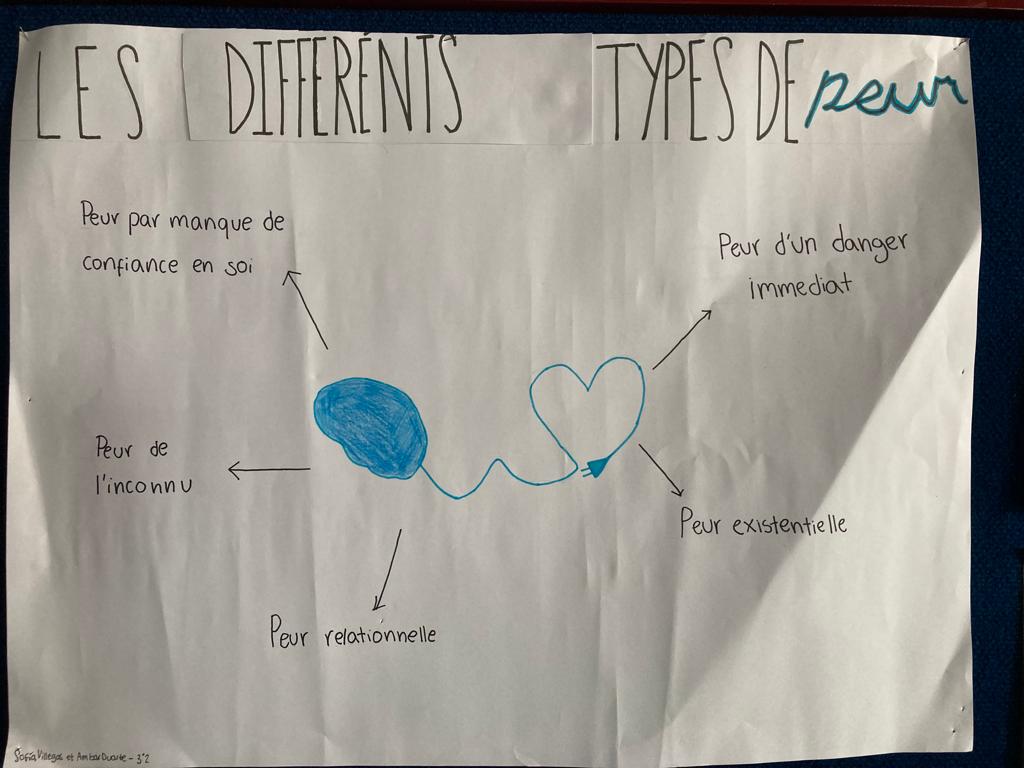 LES DIFFERÉNTS TYPES DE peur
Peur par manque de
confiance en soi
Peur d'un danger
immediat
Peur de
l'inconnu
Peur existentielle
Peur relationnelle
Sofía Villegas et Ambar Duarte - 3°2